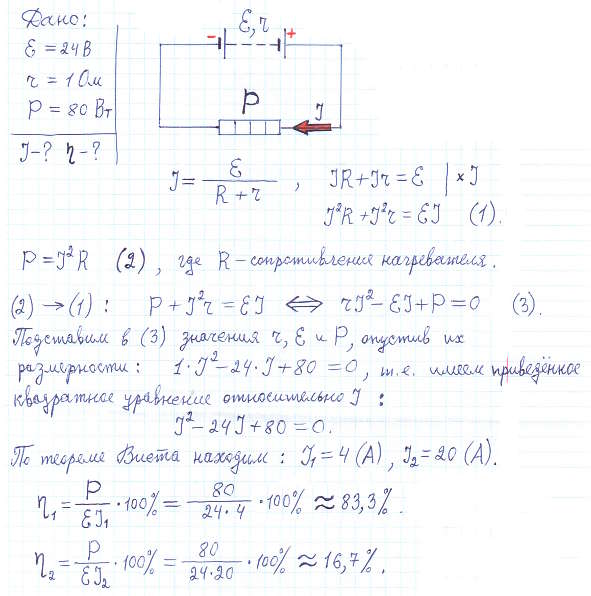 Дано:
ℰ = 24 В
r = 1 Ом
P = 80 Вт
I-? η-?
ℰ, r
- +
P
I
I = ℰ / (R + r) , IR + Ir = ℰ | × I
I²R + I²r = ℰI (1).
P = I²R (2), где R – сопротивление нагревателя.
(2) → (1) : P + I²r = ℰI ⟺ rI² - ℰI + P = 0 (3).
Подставим в (3) значения r, ℰ и P, опустив их
размерности: 1·I² - 24·I + 80 = 0, т.е. имеем приведённое
квадратное уравнение относительно I :
I² - 24I + 80 = 0.
По теореме Виета находим : I₁ = 4 (А), I₂ = 20 (А).
η₁ = P / ℰI₁ · 100% = 80 / 24·4 · 100% ≈ 83,3%.
η₂ = P / ℰI₂ · 100% = 80 / 24·20 · 100% ≈ 16,7%.